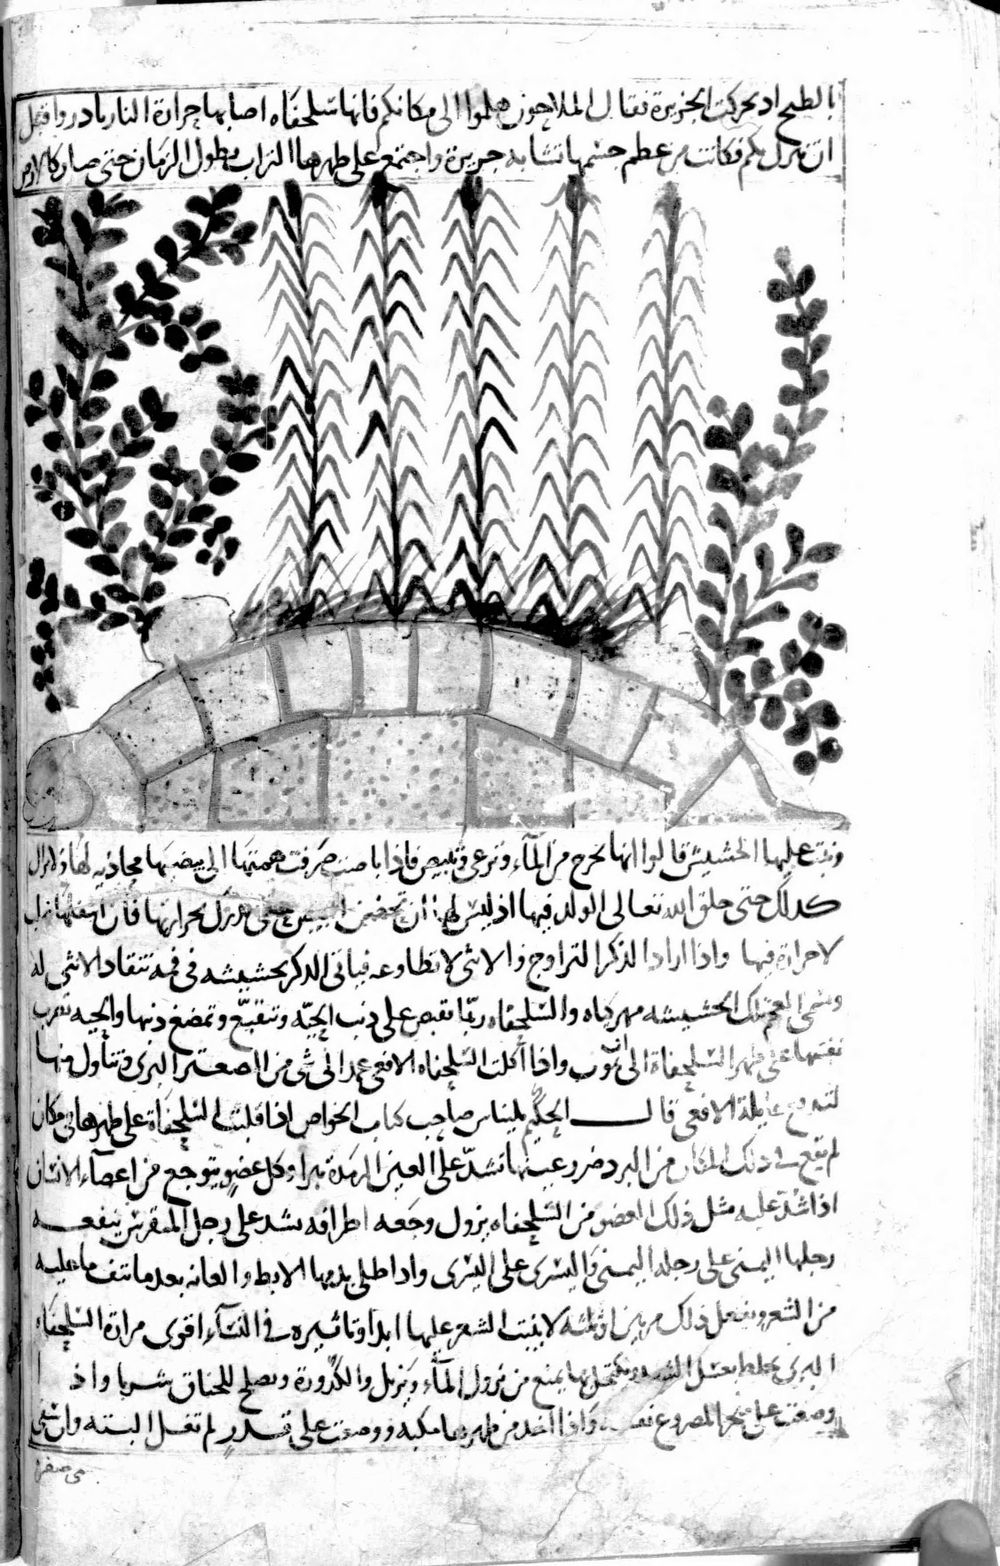 بالطبخ اد تحركت الجزيرة فقال الملاحون هلموا الى مكانكم فانها سلحفاه اصابها حرارة النار بادروا قبل
ان تنزل بكم فكانت من عظم جسمها تشابه جزيرة واجتمع على ظهرها التراب بطول الزمان حتى صار كالارض
ونبت عليها الحشيش قالوا انها تخرج من المآء وترعى وتبيض فاذا باضت صرفت همتها الى بيضها محاذيه لها ولا تزال
كذلك حتى خلق الله تعالى الولد فيها اذ ليس لها ان تحضن البيض حتى بحرارتها فان اسفلها صلب
لا حرارة فيها واذا اراد الذكر التزاوج والانثى لا تطاوعه فياتى الذكر بحشيشه فى فمه تنقاد الانثى له
العجم تلك الحشيشه مهركياه والسلحفاه ربما تقبض على ذنب الحيّه وتمضغ ذنبها والحيه تضرب
نفسها على ظهر السلحفاة الى ان تموت واذا اكلت السلحفاه الافعى عمد الى شى من الصعتر البرى فتتناول منها
لتدفع غايلة الافعى قال الحكيم بليناس صاحب كتاب الخواص اذا قلبت السلحفاة على ظهرها فى مكان
لم يقع فى ذلك المكان من البرد ضرر وعينها تشدّ على العين الرمدة تبرا وكل عضو يتوجع من اعضآء الانسان
اذا شدّ عليه مثل ذلك العضو من السلحفاه يزول وجعه اطرافه تشد على رجل المنقرس ينفعه
رجلها اليمنى على رجله اليمنى واليسرى على اليسرى واذا طلى بدمها الابط والعانه بعد ما نتف ما عليه
من الشعر ويفعل ذلك مرتين او ثلثه لا ينبت الشعر عليها ابدا وتاثيره فى النسآء اقوى مرارة السلحفاه
البرى يخلط بعسل الشهد ويكتحل بها يمنع من نزول المآء ويزيل والكدورة ويصلح للخناق شربا واذا
وضعت على منخر المصروع نفعت واذا اخذ من ظهرها مكبه ووضعت على قدر لم تغل البته وان بقى